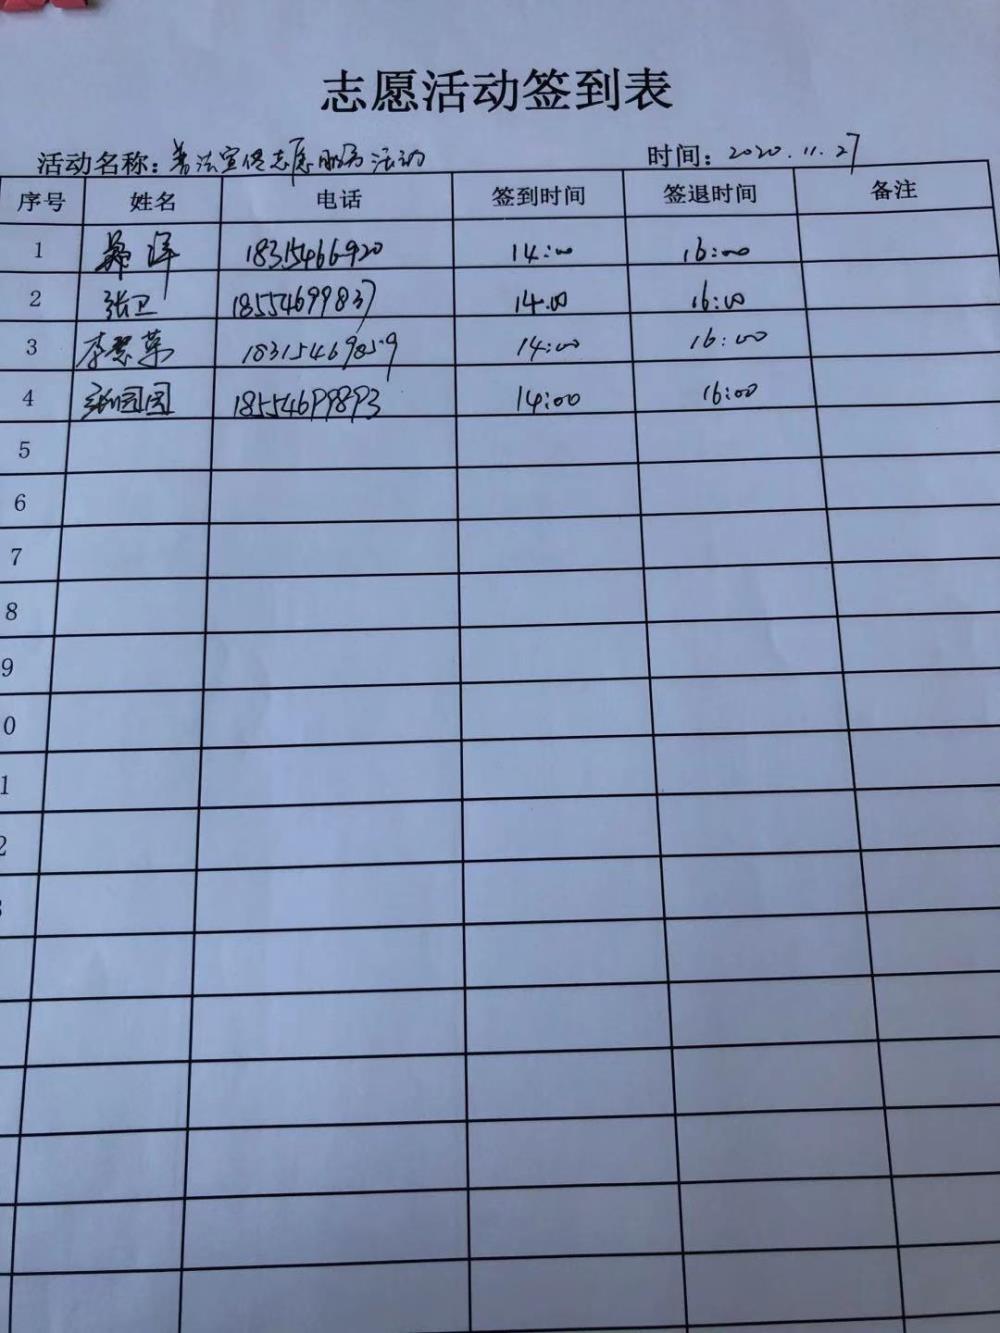 志愿活动签到表
活动名称：普法宣传志愿服务活动 时间：2020.11.27
序号 姓名 电话 签到时间 签退时间 备注
1 18315466920 14:00 16:00
2 张卫 18554699837 14:00 16:00
3 李慧 18315469859 14:00 16:00
4 张园园 18554699893 14:00 16:00
5
6
7
8
9
0
1
2